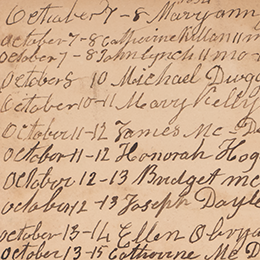 October 7-8 Maryann
October 7-8 Catherine Killan 11 mo
October 7-8 John Lynch 11 mo
October 8 10 Michael Duga
October 10-11 Mary Kelly
October 11-12 James Mc De
October 11-12 Honorah Hog
October 12-13 Bridget mc
October 12-13 Joseph Dayle
october 13-14 Ellen Obrya
october 13-15 Catherine Mc D